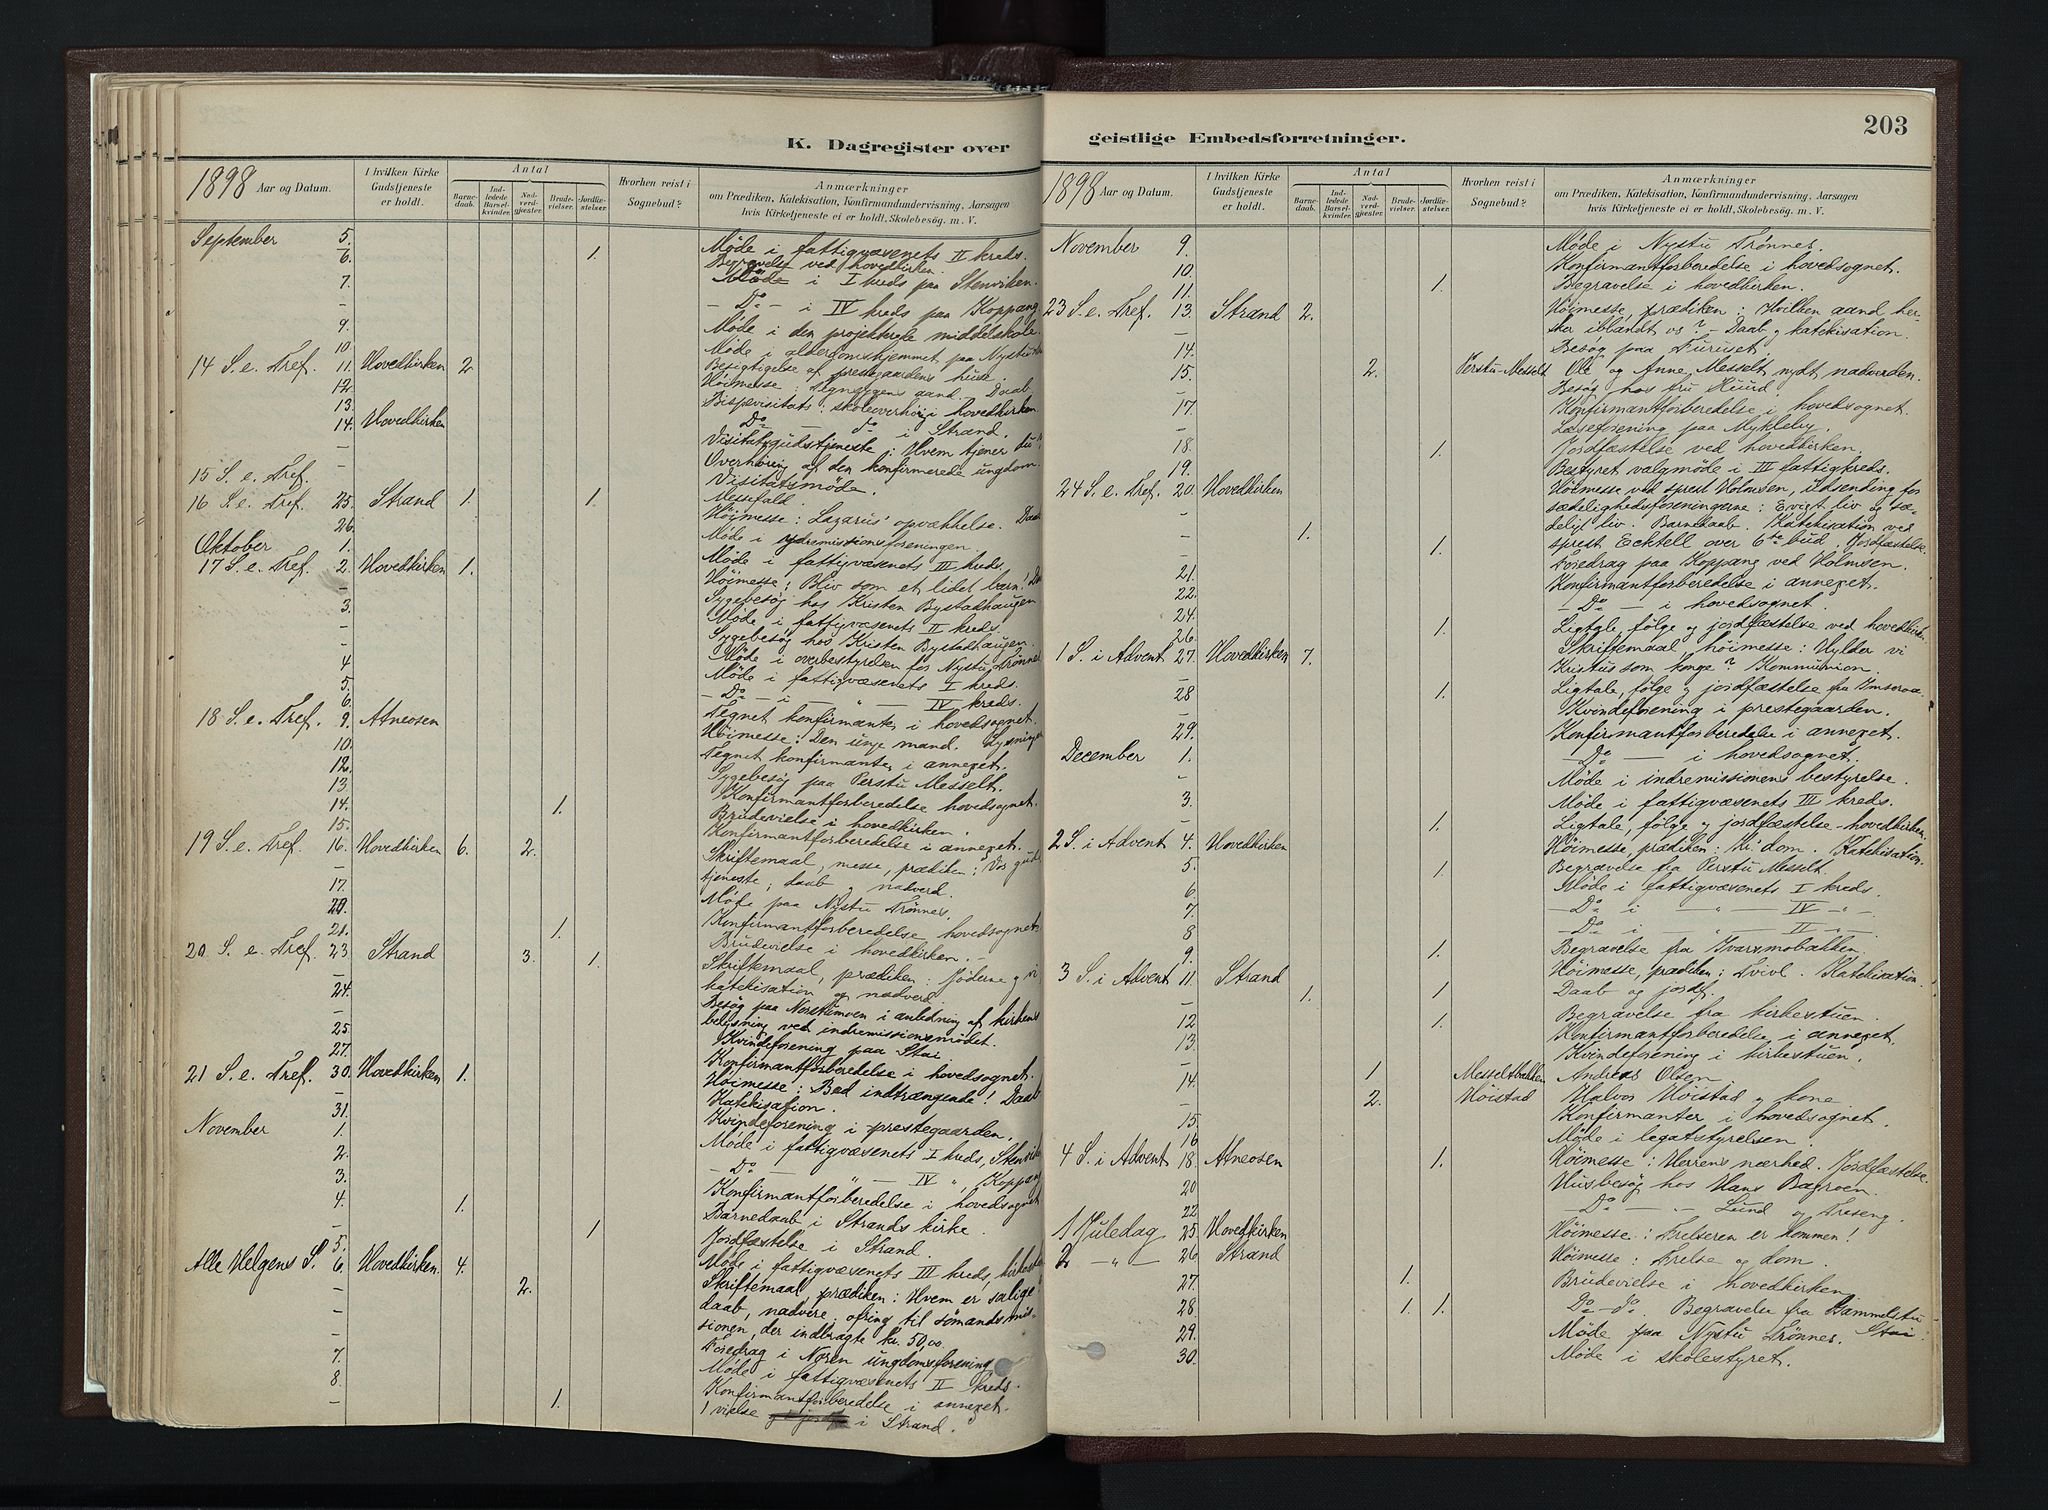 K. Dagregister over
1898 Aar og Datum.
I hvilken Kirke Gudstjeneste er holdt.
Antal
Barnedaab.
Indledede Barselkvinder.
Nadverdgjester.
Brudevielser.
Jordfæstelser.
Hvorhen reist i Sognebud?
Anmærkninger
om Prædiken, Katekisation, Konfirmandundervisning, Aarsagen
hvis Kirketjeneste ei er holdt, Skolebesøg. m. V.
September 5. Møde i fattigvæsenets II kreds.
6. 1. Begravelse ved hovedkirken.
7. Møde i I kreds paa Stenviken.
- — Do — i IV kreds paa Koppang
9. Møde i den projekterede middelskole.
10. Møde i alderdomshjemmet paa Nystu
Besigtigelse af prestegaardens huse.
14 S. e. Tref. 11. Hovedkirken 2. Høimesse: aand. Daab.
12. Bispevisitats: skoleoverhør i hovedkirken.
13. Do — do i Strand.
14. Hovedkirken Visitatsgudstjeneste: Hvem tjener du?
- Overhøring af den konfirmerede ungdom.
- Visitatsmøde.
15 S. e. Tref. Messefald.
16 S. e. Tref. 25. Strand 1. 1. Høimesse: Lazarus' opvækkelse. Daab
26. Møde i indremissionsforeningen.
Oktober 1. Møde i fattigvæsenets III kreds.
17 S. e. Tref. 2. Hovedkirken 1. Høimesse: Bliv som et lidet barn!
- Sygebesøg hos Kristen Bystadhaugen
3. Møde i fattigvæsenets II kreds.
- Sygebesøg hos Kristen Bystadhaugen.
- Møde i overbestyrelsen for Nystu Trønnes
4. Møde i fattigvæsenets I kreds.
5. — Do — i — " — IV kreds.
6. Tegnet konfirmanter i hovedsognet.
18 S. e. Tref. 9. Atneosen Høimesse: Den unge mand. Lysninger
10. Tegnet konfirmanter i annexet.
12. Sygebesøg paa Perstu Messelt.
13. Konfirmantforberedelse hovedsognet.
14. 1. Brudevielse i hovedkirken.
15. Konfirmantforberedelse i annexet.
19 S. e. Tref. 16. Hovedkirken 6. 2. Skriftemaal, messe, prædiken: Vor guds
tjeneste; daab og nadverd.
17. Møde paa Nystu Trønnes.
20. Konfirmantforberedelse hovedsognet
21. 1. Brudevielse i hovedkirken.
20 S. e. Tref. 23 Strand 3. 1. Skriftemaal, prædiken: Jøderne og vi
- katekisation og nadverd.
24. Besøg paa Norstumoen i anledning af kirkens
belysning ved indremissionsmødet.
25. Kvindeforening paa Stai.
27. Konfirmantforberedelse i hovedsognet.
21 S. e. Tref. 30. Hovedkirken 1. Høimesse: Bed indtrængende! Daab
Katekisation.
31. Kvindeforening i prestegaarden.
November 1. Møde i fattigvæsenets I kreds, Stenviken
2. — Do — " — IV ", Koppang
3. Konfirmantforberedelse i hovedsognet
4. 1. Barnedaab i Strands kirke.
- 1 Jordfæstelse i Strand.
5. Møde i fattigvæsenets III kreds,
Alle Helgens S. 6. Hovedkirken. 4. Skriftemaal, prædiken: Hvem er salige?
2. daab, nadvere, ofring til sømandsmis-
sionen, der indbragte kr. 50,00
- Foredrag i Noren ungdomsforening
7. Møde i fattigvæsenets II kreds.
8. Konfirmantforberedelse i annexet.
- 1. 1 vielse i Strand.
geistlige Embedsforretninger.
203
1898 Aar og Datum.
I hvilken Kirke Gudstjeneste er holdt.
Antal
Barnedaab.
Indledede Barselkvinder.
Nadverdgjester.
Brudevielser.
Jordfæstelser.
Hvorhen reist i Sognebud?
Anmærkninger
om Prædiken, Katekisation, Konfirmandundervisning, Aarsagen
hvis Kirketjeneste ei er holdt, Skolebesøg. m. V.
November 9. Møde i Nystu Trønnes.
10. Konfirmantforberedelse i hovedsognet.
11. 1. Begravelse i hovedkirken.
23 S. e. Tref. 13. Strand 2. Høimesse, prædiken: Hvilken aand her-
sker iblandt os? — Daab og katekisation.
14. Besøg paa Furuset.
15. 2. Perstu-Messelt Ole og Anne Messelt nydt nadverden.
- Besøg hos fru Huud.
17. Konfirmantforberedelse i hovedsognet.
- Læseforening paa Mykleby.
18. 1. Jordfæstelse ved hovedkirken.
19. Bestyret valgmøde i III fattigkreds.
24 S. e. Tref. 20. Hovedkirken Høimesse ved sprest Holmsen, udsending for
- sædelighedsforeningerne: Evigt liv og sæ-
1. deligt liv. Barnedaab. Katekisation ved
- 1. sprest. Ecktell over 6te bud. Jordfæstelse.
Foredrag paa Koppang ved Holmsen.
21. Konfirmantforberedelse i annexet.
22. — Do — i hovedsognet.
24. 1. Ligtale, følge og jordfæstelse ved hovedkirk.
26. Skriftemaal, høimesse: Hylder vi
1 S. i Advent 27. Hovedkirken 7. Kristus som konge? Kommunion.
28 1. Ligtale, følge og jordfæstelse fra Imsroa.
- Kvindeforening i prestegaarden.
29. Konfirmantforberedelse i annexet.
December 1. — Do — i hovedsognet.
- Møde i indremissionens bestyrelse.
3. Møde i fattigvæsenets III kreds.
- 1. Ligtale, følge og jordfæstelse – hovedkirken.
2 S. i Advent 4. Hovedkirken Høimesse, prædiken: dom. Katekisation.
5. 1. Begravelse fra Perstu Messelt.
6 Møde i fattigvæsenets I kreds.
7. — Do — i — " — IV — " —
8 — Do — i — " — II — " —
9. 1. Begravelse fra Kvarnbækken.
3 S. i Advent 11. Strand Høimesse, prædiken: Tvivl. Katekisation.
- 1. 1 Daab og jordf.
12 1. Begravelse fra kirkestuen.
13. Konfirmantforberedelse i annexet.
Kvindeforening i kirkestuen.
14. 1 Messeltbakken Andreas Olsen
- 2. Høistad Halvor Høistad og kone
15. Konfirmanter i hovedsognet.
16 Møde i legatstyrelsen.
4 S. i Advent 18. Atneosen 1. Høimesse: Herrens nærhed. Jordfæstelse.
20 Husbesøg hos Hans Bagroen.
22 — Do — Lund og Treseng.
1 Juledag 25. Hovedkirken Høimesse: Frelseren er kommen!
2 — " — 26 Strand Høimesse: Frelse og dom.
27. 1. Brudevielse i hovedkirken.
28 1. 1. Do — do. Begravelse fra Gammelstu
29. Møde paa Nystu Trønnes. Stai
30. Møde i skolestyret.